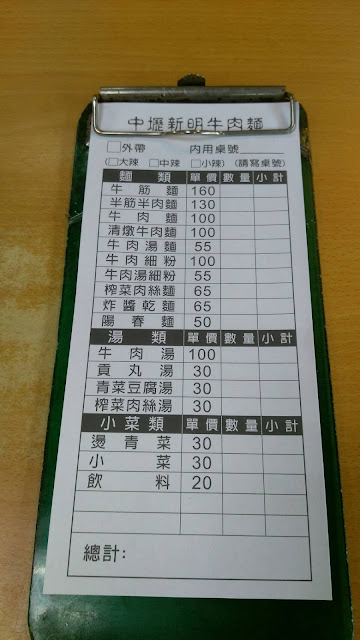 中壢新明牛肉麵
□外帶 內用桌號
(□大辣 □中辣 □小辣) (請寫桌號)
麵類 單價 數量 小計
牛筋麵 160
半筋半肉麵 130
牛肉麵 100
清燉牛肉麵 100
牛肉湯麵 55
牛肉細粉 100
牛肉湯細粉 55
榨菜肉絲麵 65
炸醬乾麵 65
陽春麵 50
湯類 單價 數量 小計
牛肉湯 100
貢丸湯 30
青菜豆腐湯 30
榨菜肉絲湯 30
小菜類 單價 數量 小計
燙青菜 30
小菜 30
飲料 20
總計: